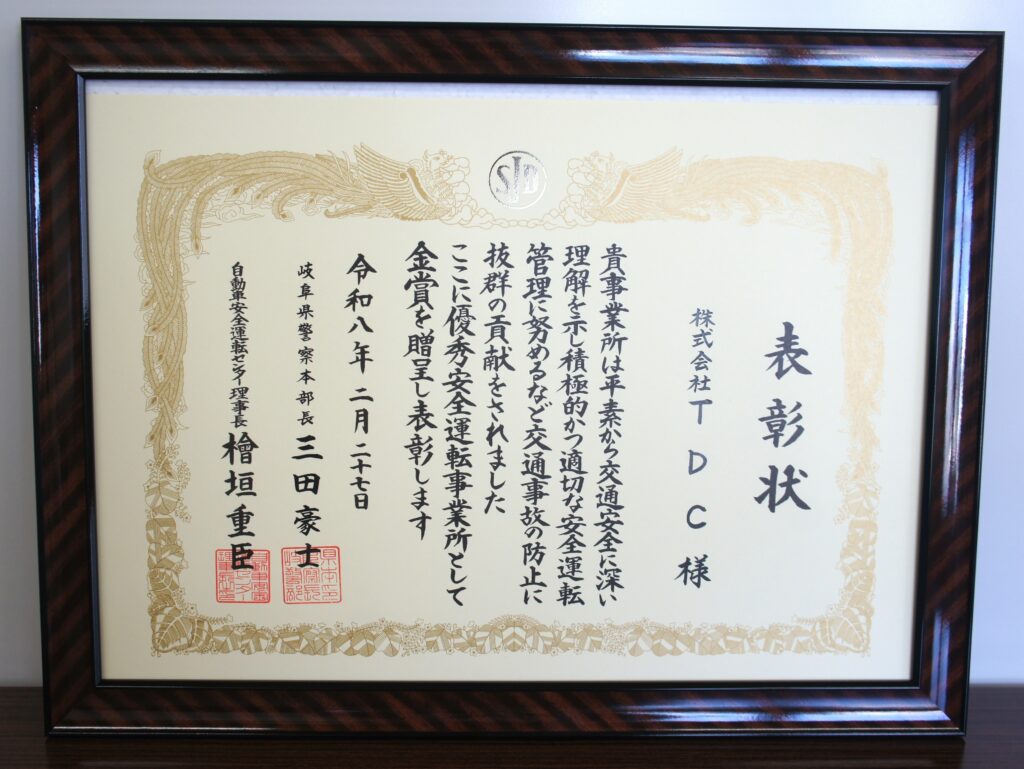 SD
表彰状
株式会社TDC様
貴事業所は平素から交通安全に深い
理解を示し積極的かつ適切な安全運転
管理に努めるなど交通事故の防止に
抜群の貢献をされました
ここに優秀安全運転事業所として
金賞を贈呈し表彰します
令和八年二月二十七日
岐阜県警察本部長 三田豪士
自動車安全運転センター理事長 檜垣重臣